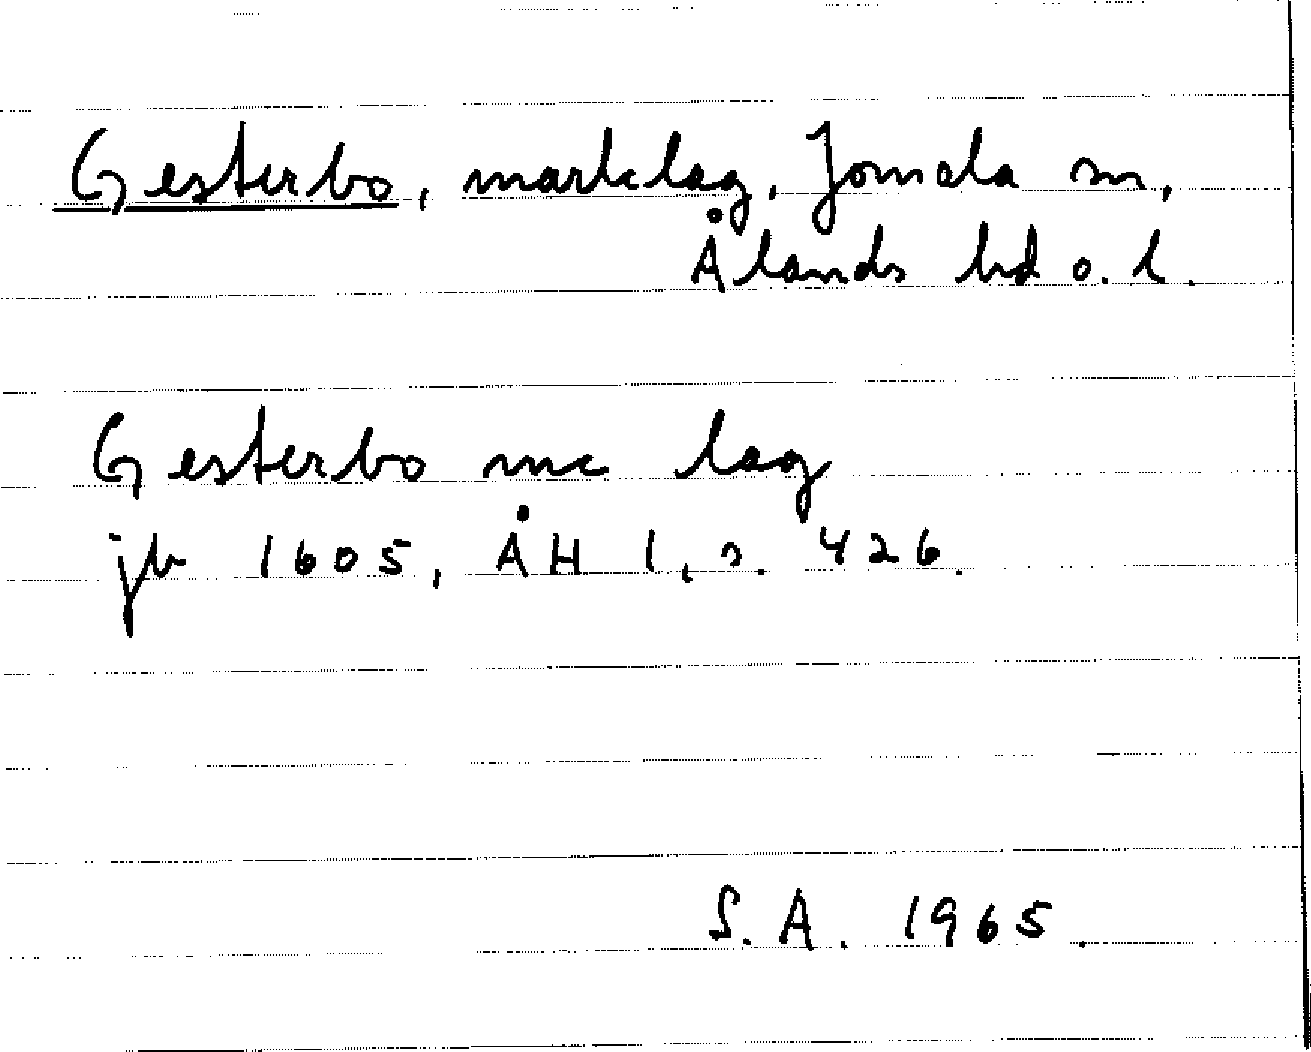 Gesterbo, marklag, Jomala sn,
Ålands hd o. l.
Gesterbo mc lag
jb 1605, ÅH 1, s. 426.
S. A. 1965.